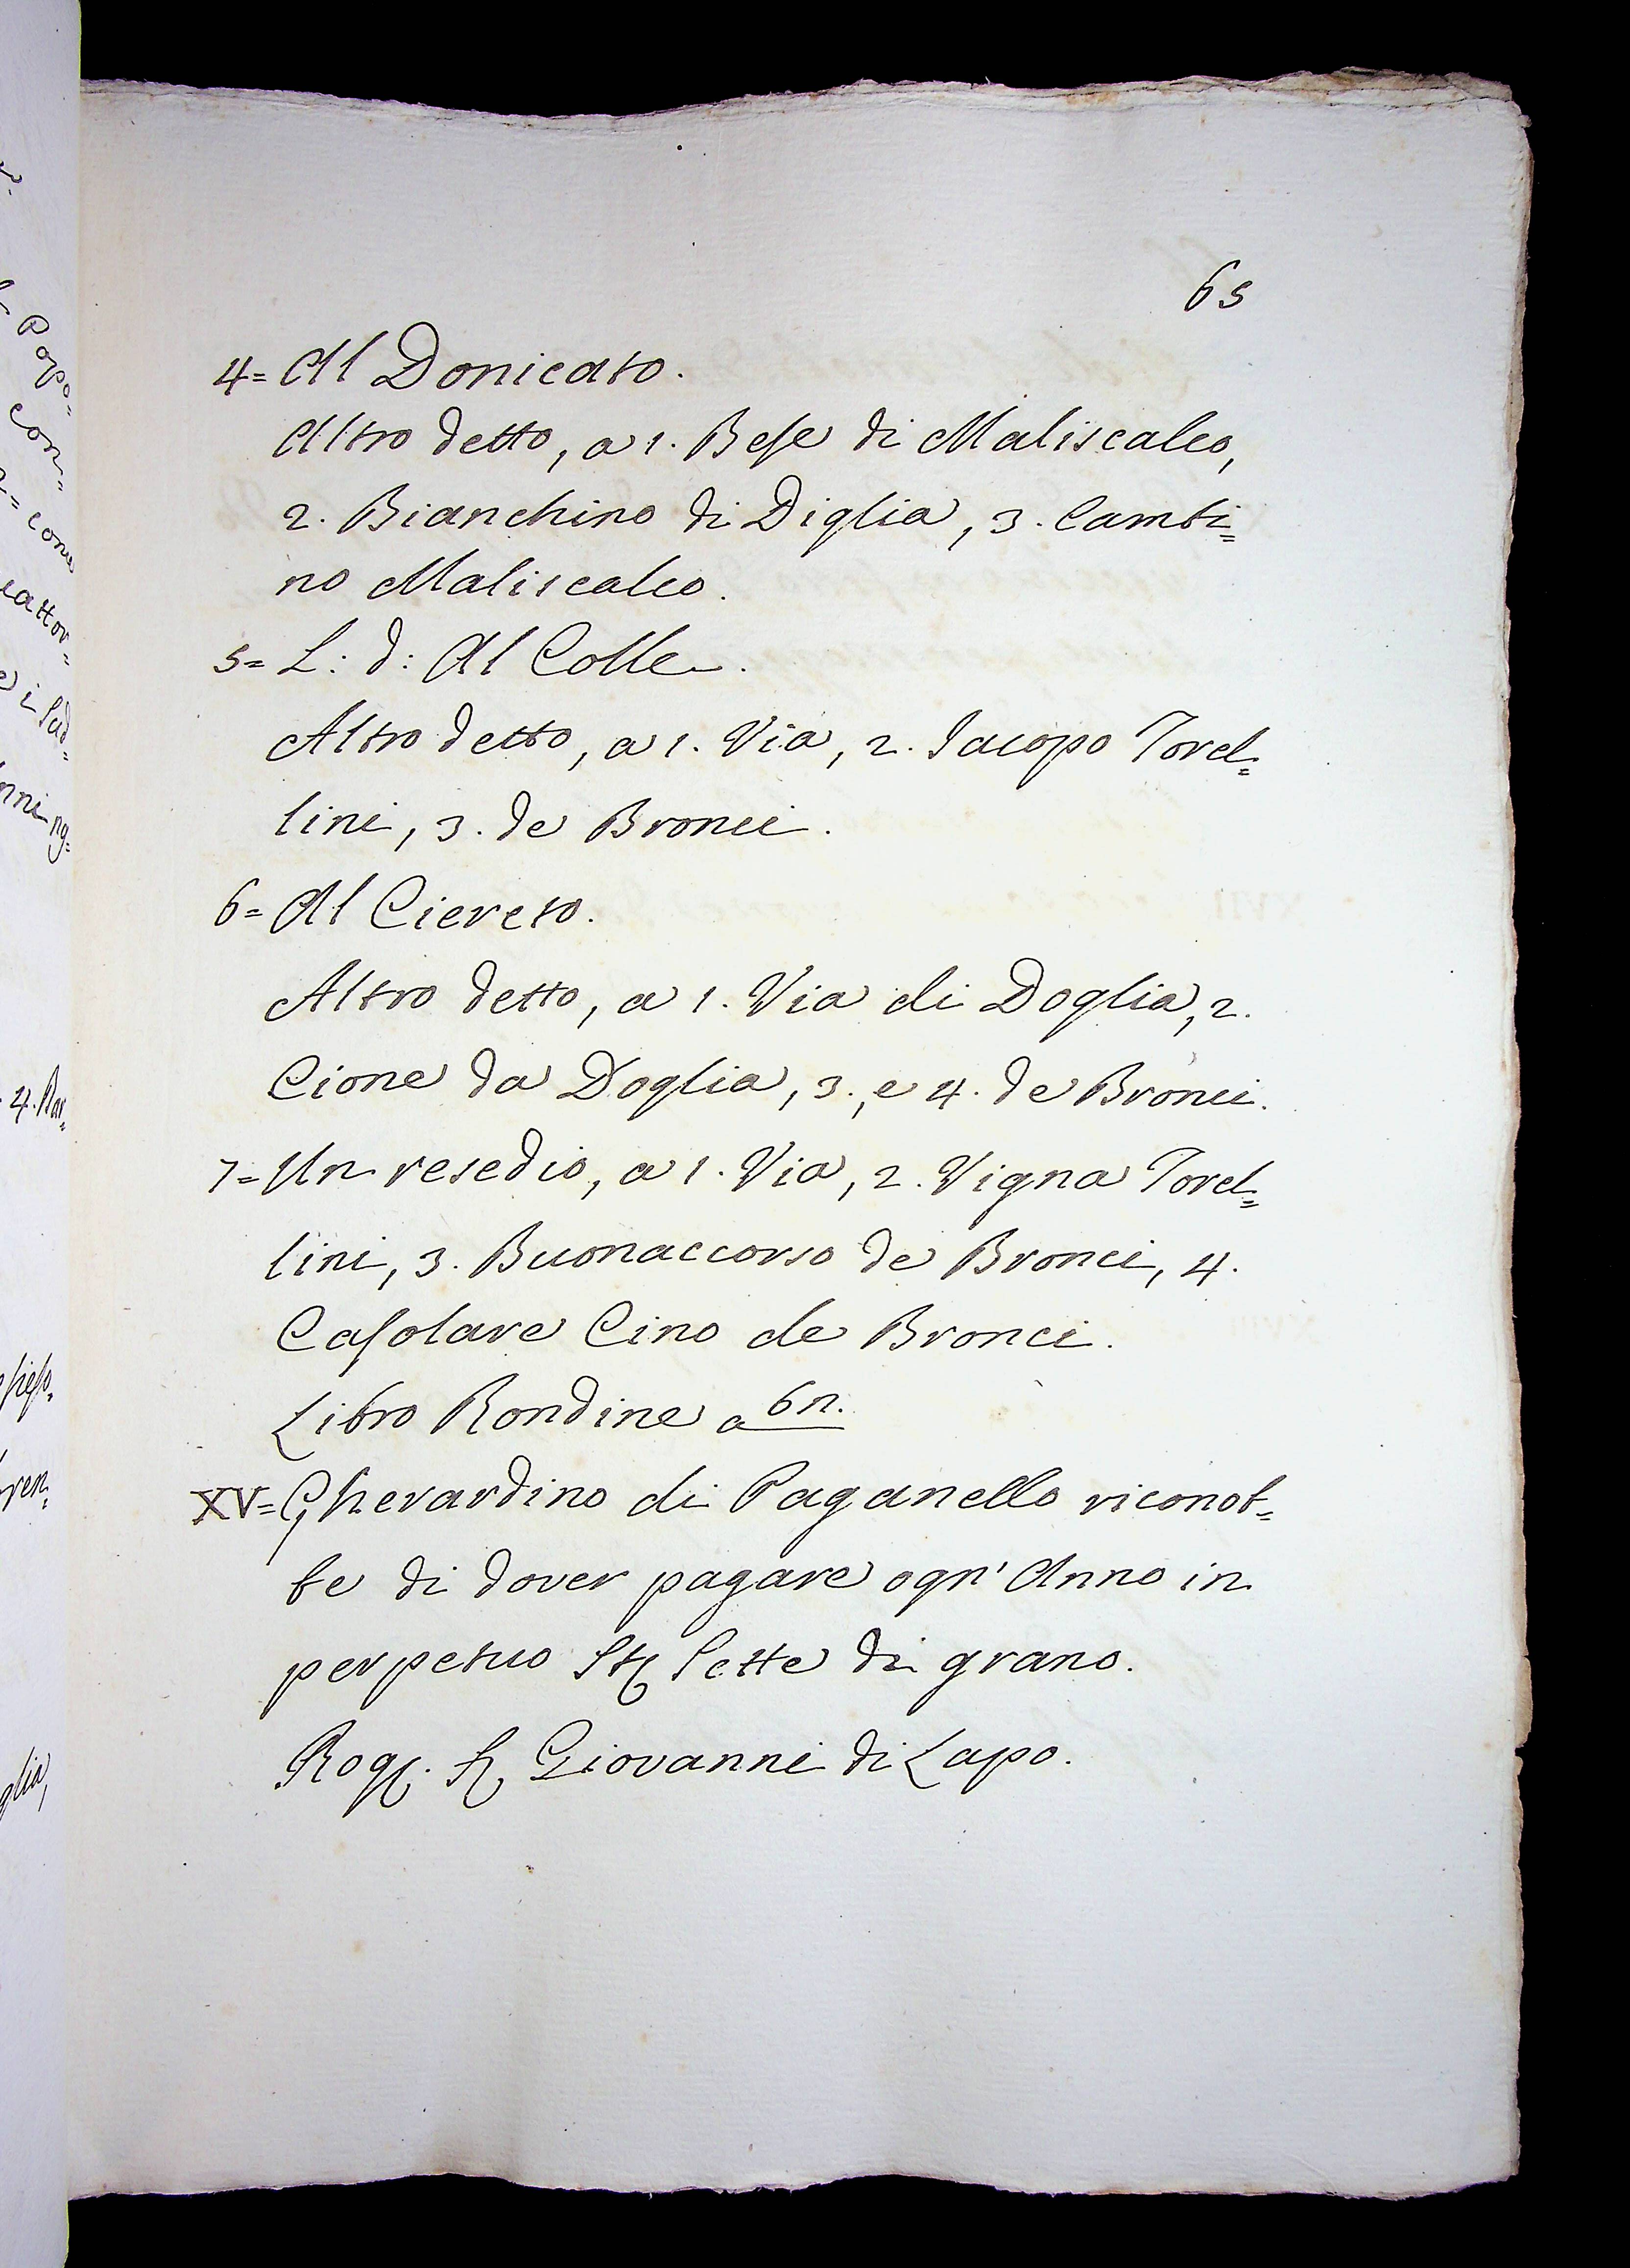 65
4= Al Donicato.
Altro detto, a 1. Bese di Maliscalco,
2. Bianchino di Diglia, 3. Cambi=
no Maliscalco.
5= L: d: Al Colle.
Altro detto, a 1. Via, 2. Iacopo Torel=
lini, 3. de Bronci.
6= Al Ciereto.
Altro detto, a 1. Via di Doglia, 2.
Cione da Doglia, 3., e 4. de Bronci.
7= Un resedio, a 1. Via, 2. Vigna Torel=
lini, 3. Buonaccorso de Bronci, 4.
Casolare Cino de Bronci.
Libro Rondine a 62.
XV= Gherardino di Paganello riconob=
be di dover pagare ogn' Anno in
perpetuo Sta Sette di grano.
Rog. Sr Giovanni di Lapo.